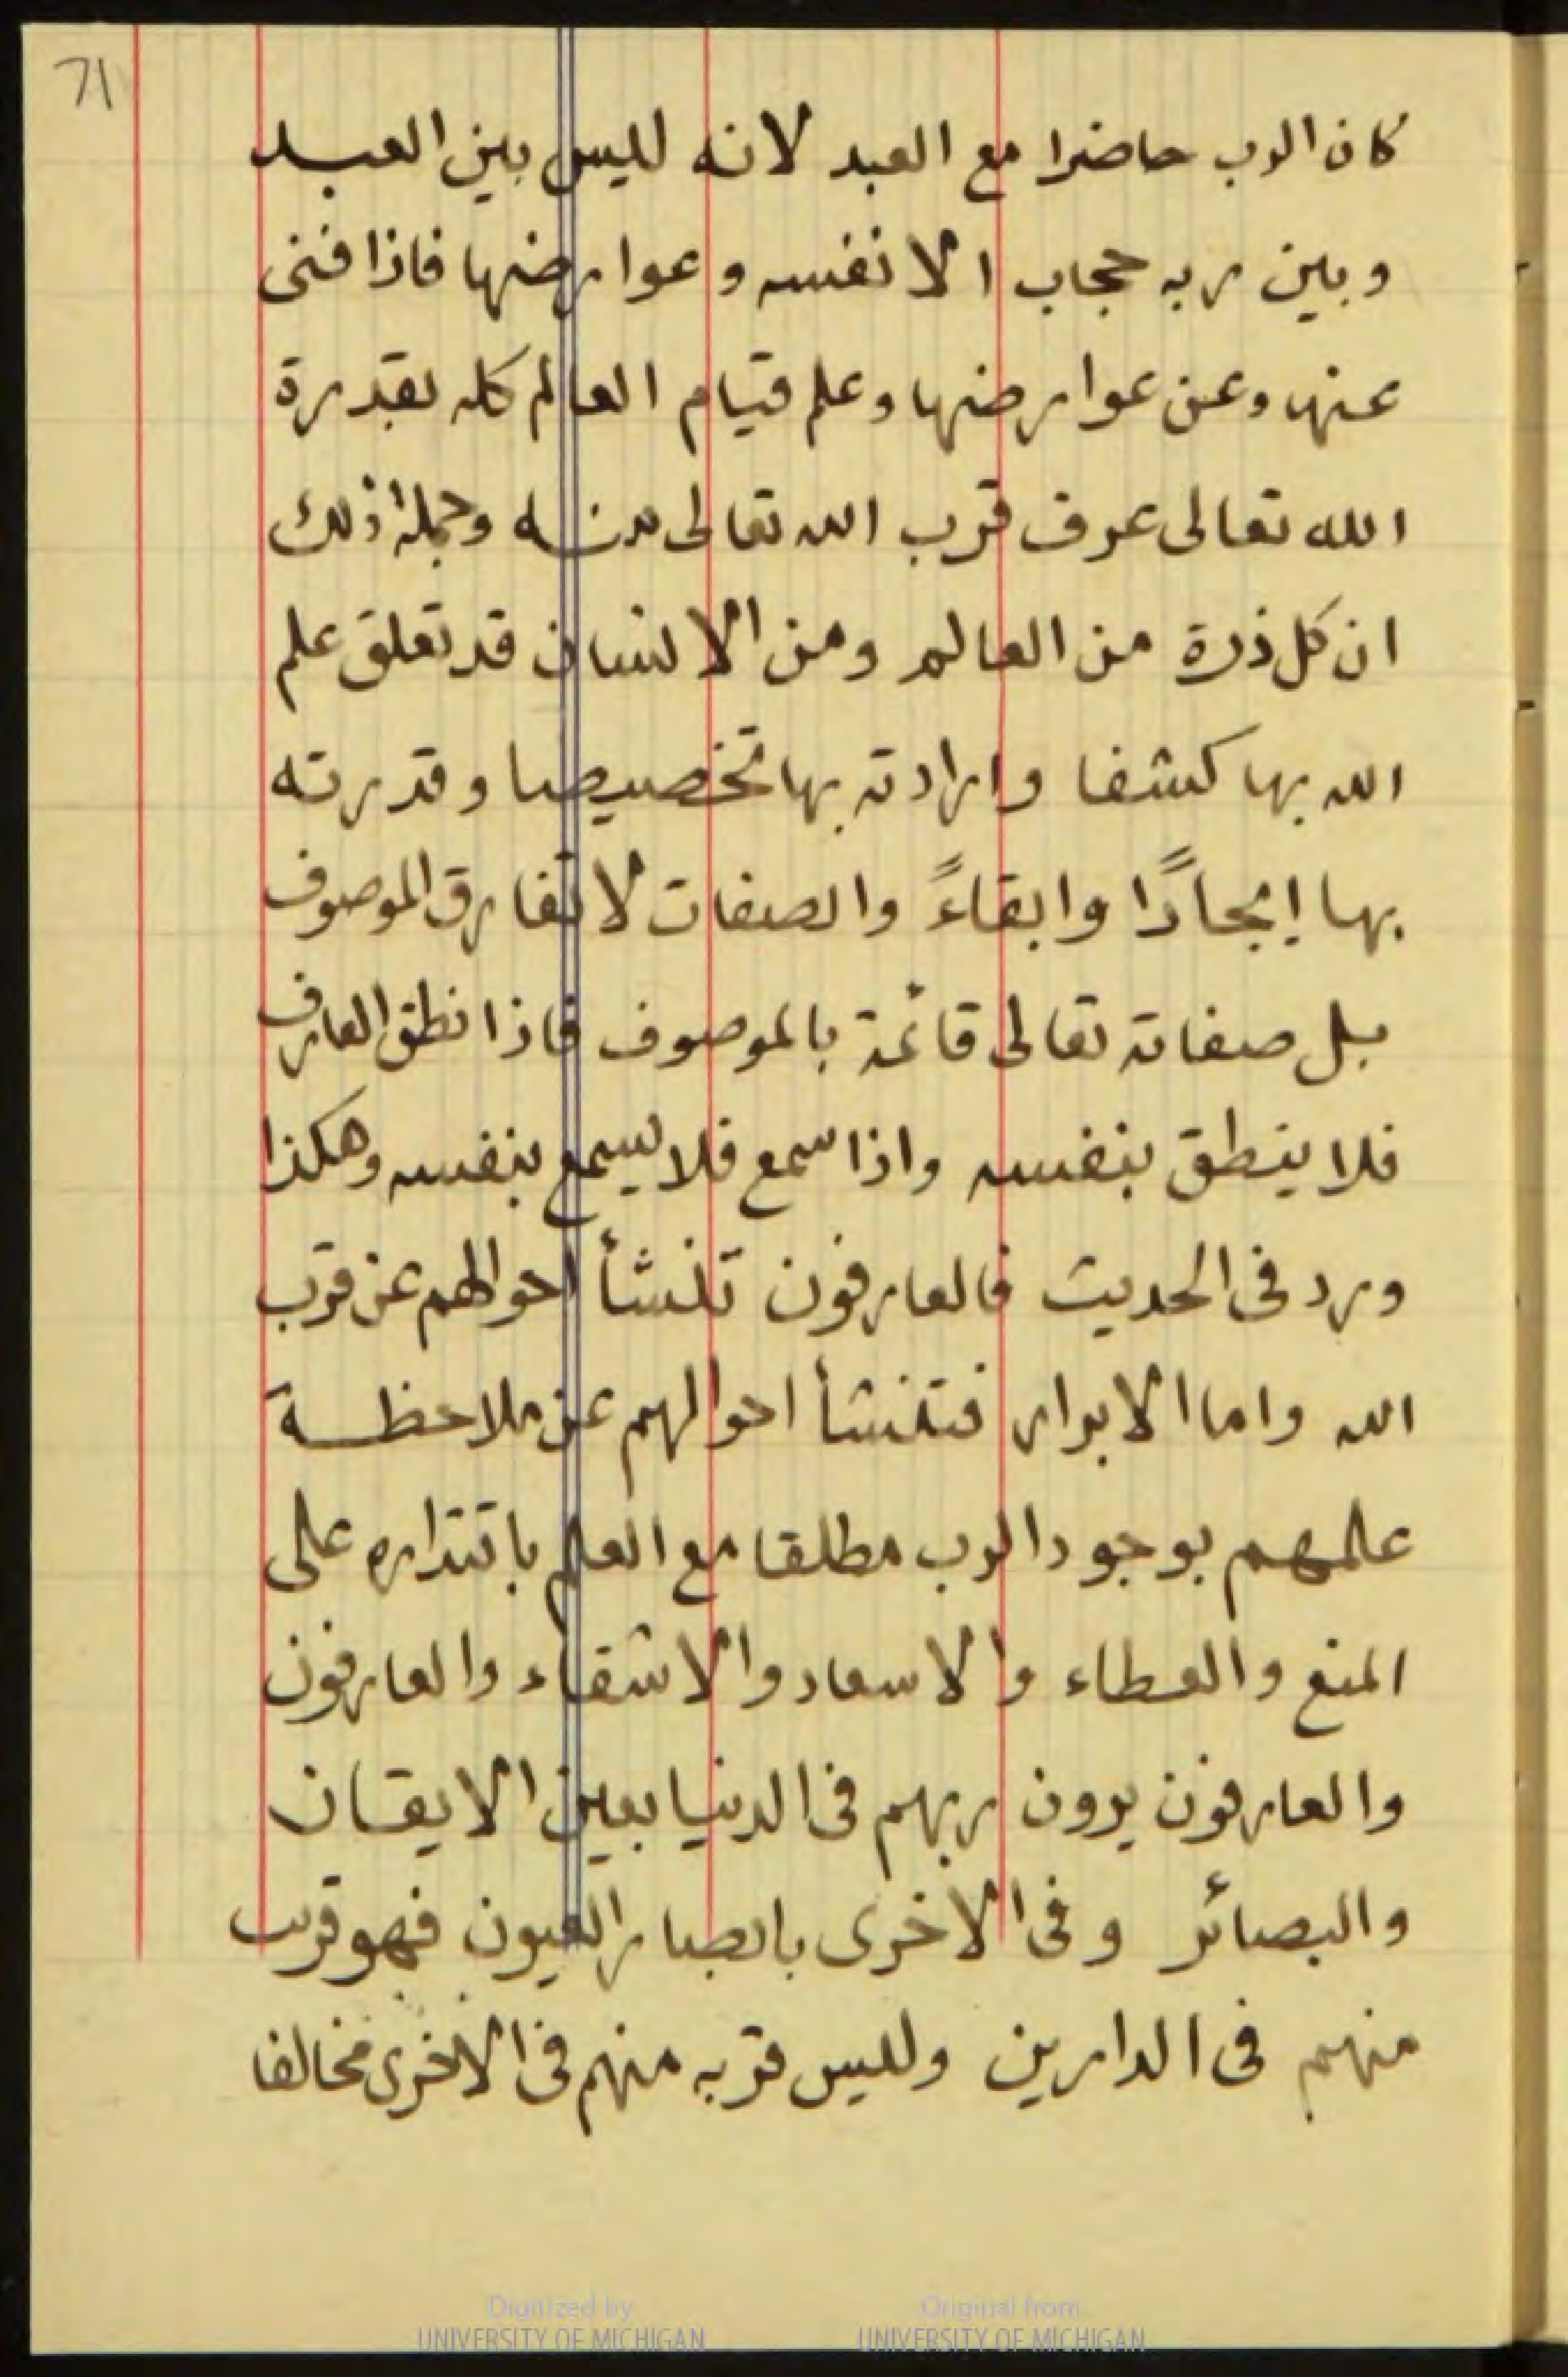 71
كان الرب حاضرا مع العبد لانه ليس بين العبد
وبين ربه حجاب الا نفسه وعوارضها فاذا فنى
عنها وعن عوارضها وعلم قيام العالم كله بقدرة
الله تعالى عرف قرب الله تعالى منه وجملة ذلك
ان كل ذرة من العالم ومن الانسان قد تعلق علم
الله بها كشفا وارادته بها تخصيصا وقدرته
بها إيجادًا وابقاءً والصفات لا تفارق الموصوف
بل صفاته تعالى قائمة بالموصوف فاذا نطق العارف
فلا ينطق بنفسه واذا سمع فلا يسمع بنفسه وهكذا
ورد فى الحديث فالعارفون تنشأ احوالهم عن قرب
الله واما الابرار فتنشأ احوالهم عن ملاحظة
علمهم بوجود الرب مطلقا مع العلم باقتداره على
المنع والعطاء والاسعاد والاشقاء والعارفون
والعارفون يرون ربهم فى الدنيا بعين الايقان
والبصائر وفى الاخرى بابصار العيون فهو قريب
منهم فى الدارين وليس قربه منهم فى الاخرى مخالفا
Digitized by
UNIVERSITY OF MICHIGAN
Original from
UNIVERSITY OF MICHIGAN